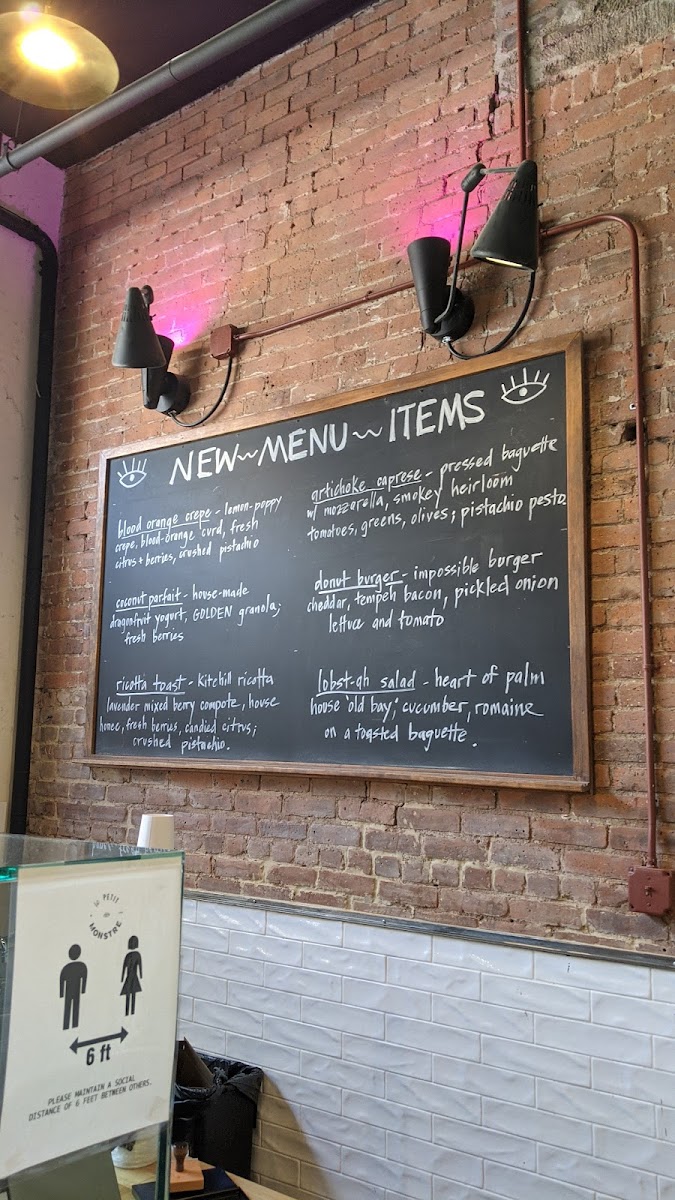 NEW~MENU~ITEMS
blood orange crepe - lemon-poppy
crepe, blood-orange curd, fresh
citrus + berries, crushed pistachio
coconut parfait - house-made
dragonfruit yogurt, GOLDEN granola;
fresh berries
ricotta toast - kitehill ricotta
lavender mixed berry compote, house
honee, fresh berries, candied citrus;
crushed pistachio.
artichoke caprese - pressed baguette
w/ mozzarella, smokey heirloom
tomatoes, greens, olives; pistachio pesto
donut burger - impossible burger
cheddar, tempeh bacon, pickled onion
lettuce and tomato
lobst-ah salad - heart of palm
house 'old bay,' cucumber, romaine
on a toasted baguette.
PETIT
MONSTRE
6 ft
PLEASE MAINTAIN A SOCIAL
DISTANCE OF 6 FEET BETWEEN OTHERS.